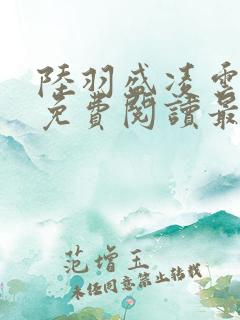 陸羽盛凌雲
免費閱讀最
范增玉
未经同意禁止转载